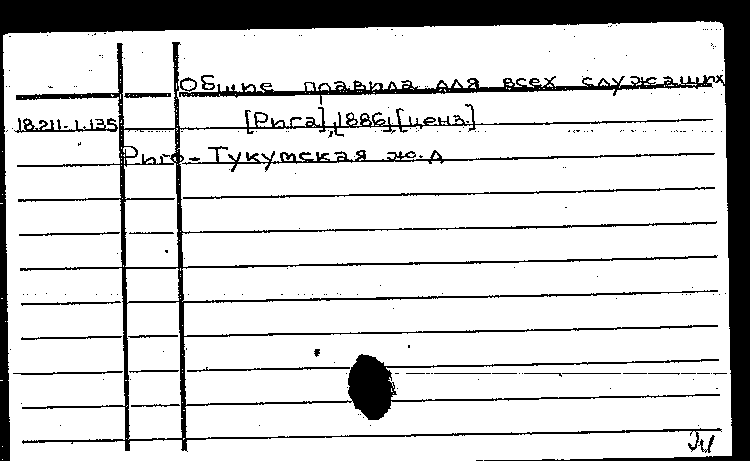 Общие правила для всех служащих
18.211.1.135 [Рига], [1886], [ценз]
Риго-Тукумская ж.д